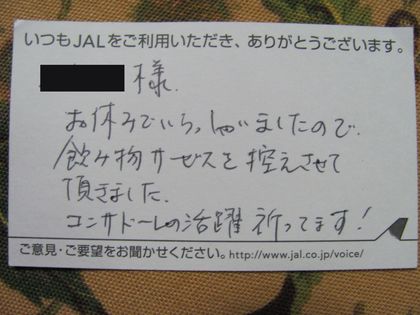 いつもJALをご利用いただき、ありがとうございます。
様.
お休みでいらっしゃいましたので.
飲み物サービスを控えさせて
頂きました.
コンサドーレの活躍祈ってます!
ご意見・ご要望をお聞かせください。http://www.jal.co.jp/voice/